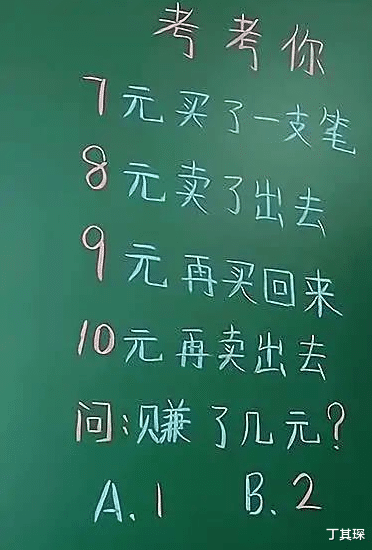 考考你
7元买了一支笔
8元卖了出去
9元再买回来
10元再卖出去
问:赚了几元?
A.1 B.2
丁其琛